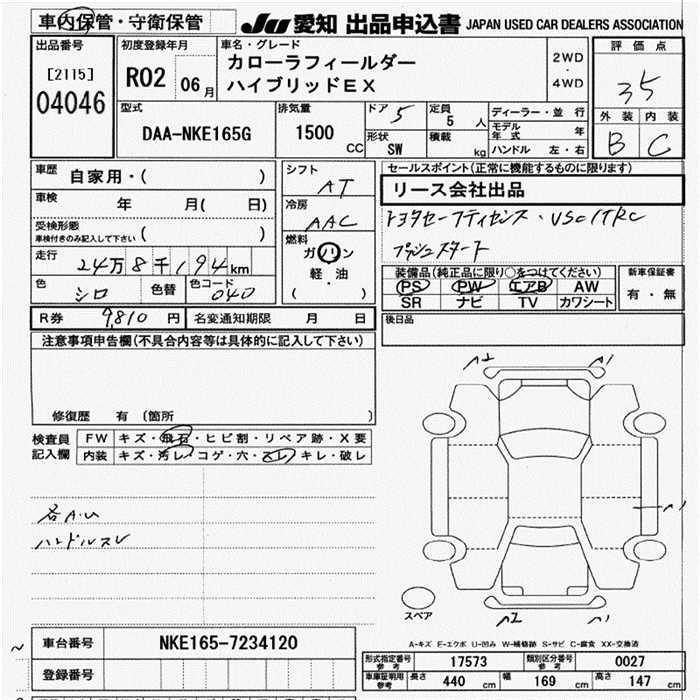 車内保管・守衛保管
JU 愛知 出品申込書 JAPAN USED CAR DEALERS ASSOCIATION
出品番号
[2115]
04046
初度登録年月
R02 06月
車名・グレード
カローラフィールダー
ハイブリッドEX
2WD
・
4WD
評価点
35
外装 内装
B C
型式
DAA-NKE165G
排気量
1500 CC
ドア 5
形状 SW
定員 5 人
積載 kg
ディーラー・並 行
モデル年式 年
ハンドル 左・右
車歴 自家用・( )
車検 年 月( 日)
受検形態
車検付きのみ記入して下さい ( )
走行 24万8千194km
色 シロ 色替 色コード 040
シフト
AT
冷房
AAC
燃料
ガソリン
軽・油
( )
セールスポイント(正常に機能するものに限り)
リース会社出品
トヨタセーフティセンス・VSC/TRC
プッシュスタート
装備品(純正品に限り○をつけてください)
PS PW エアB AW
SR ナビ TV カワシート
新車保証書
有・無
R券 9,810 円 名変通知期限 月 日
後日品
注意事項申告欄(不具合内容等は具体的に記入して下さい)
修復歴 有 (箇所 )
検査員記入欄
FW キズ・飛石・ヒビ割・リペア跡・X要
内装 キズ・汚レ・コゲ・穴・スレ・キレ・破レ
各A・U
ハンドルスレ
A2 A1
A1
A2 A1
スペア
A-キズ E-エクボ U-凹み W-補修跡 S-サビ C-腐食 XX-交換済
車台番号 NKE165-7234120
登録番号
形式指定番号 参考 17573 類別区分番号 参考 0027
車庫証明用 参考 長さ 440 cm 幅 169 cm 高さ 147 cm